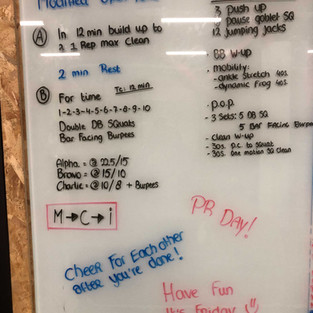 (A) In 12 min build up to
a 1 Rep max Clean
2 min Rest
(B) TC: 12 min
For time
1-2-3-4-5-6-7-8-9-10
Double DB Squats
Bar Facing Burpees
Alpha = @ 22.5/15
Bravo = @ 15/10
Charlie = @ 10/8 + Burpees
M→C→i
Cheer For Each other
after you're done!
3 Push up
Pause goblet SQ
12 Jumping Jacks
BB w-up
. mobility:
- ankle stretch 40s
- dynamic frog 40s
p.o.p.
- 3 Sets: 5 DB SQ
5 Bar Facing Burpees
- Clean w-up
- 30s. P.C to Squat
- 30s One motion SQ Clean
PR DAY!
Have Fun
this Friday